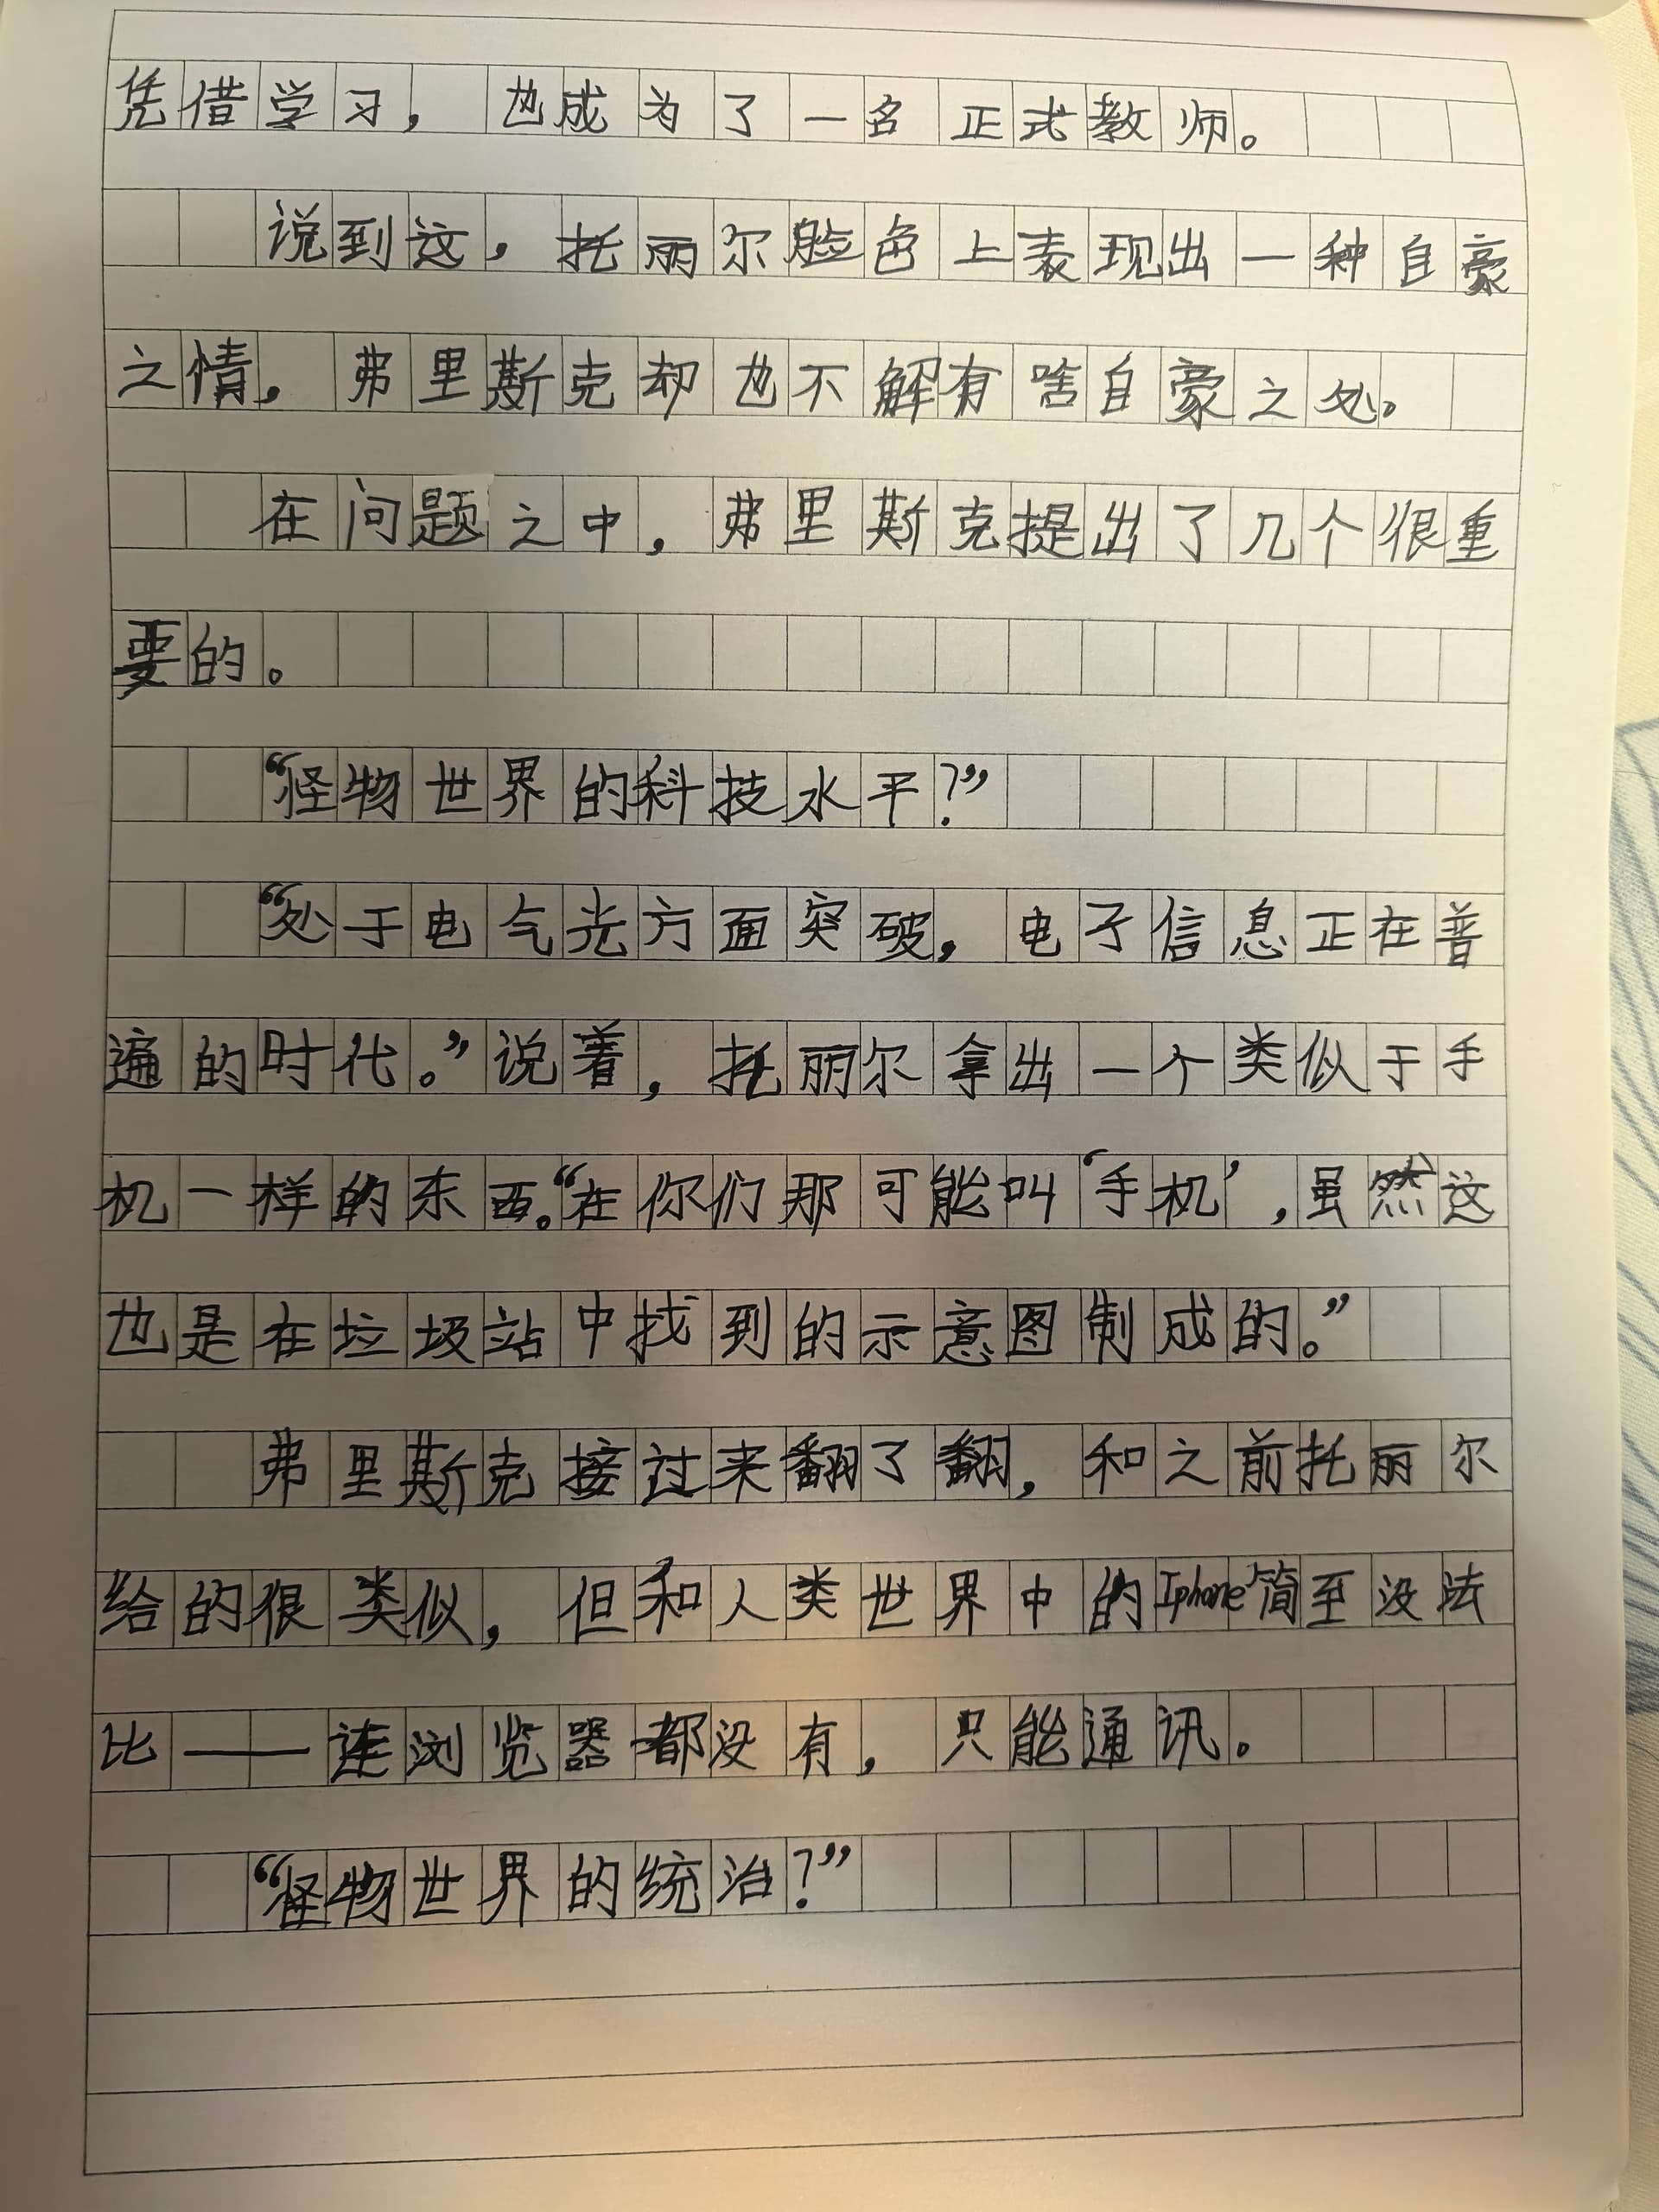 凭借学习，也成为了一名正式教师。
说到这，托丽尔脸色上表现出一种自豪
之情，弗里斯克却也不解有啥自豪之处。
在问题之中，弗里斯克提出了几个很重
要的。
“怪物世界的科技水平？”
“处于电气光方面突破，电子信息正在普
遍的时代。”说着，托丽尔拿出一个类似于手
机一样的东西。“在你们那可能叫‘手机’，虽然这
也是在垃圾站中找到的示意图制成的。”
弗里斯克接过来翻了翻，和之前托丽尔
给的很类似，但和人类世界中的Iphone简至没法
比——连浏览器都没有，只能通讯。
“怪物世界的统治？”